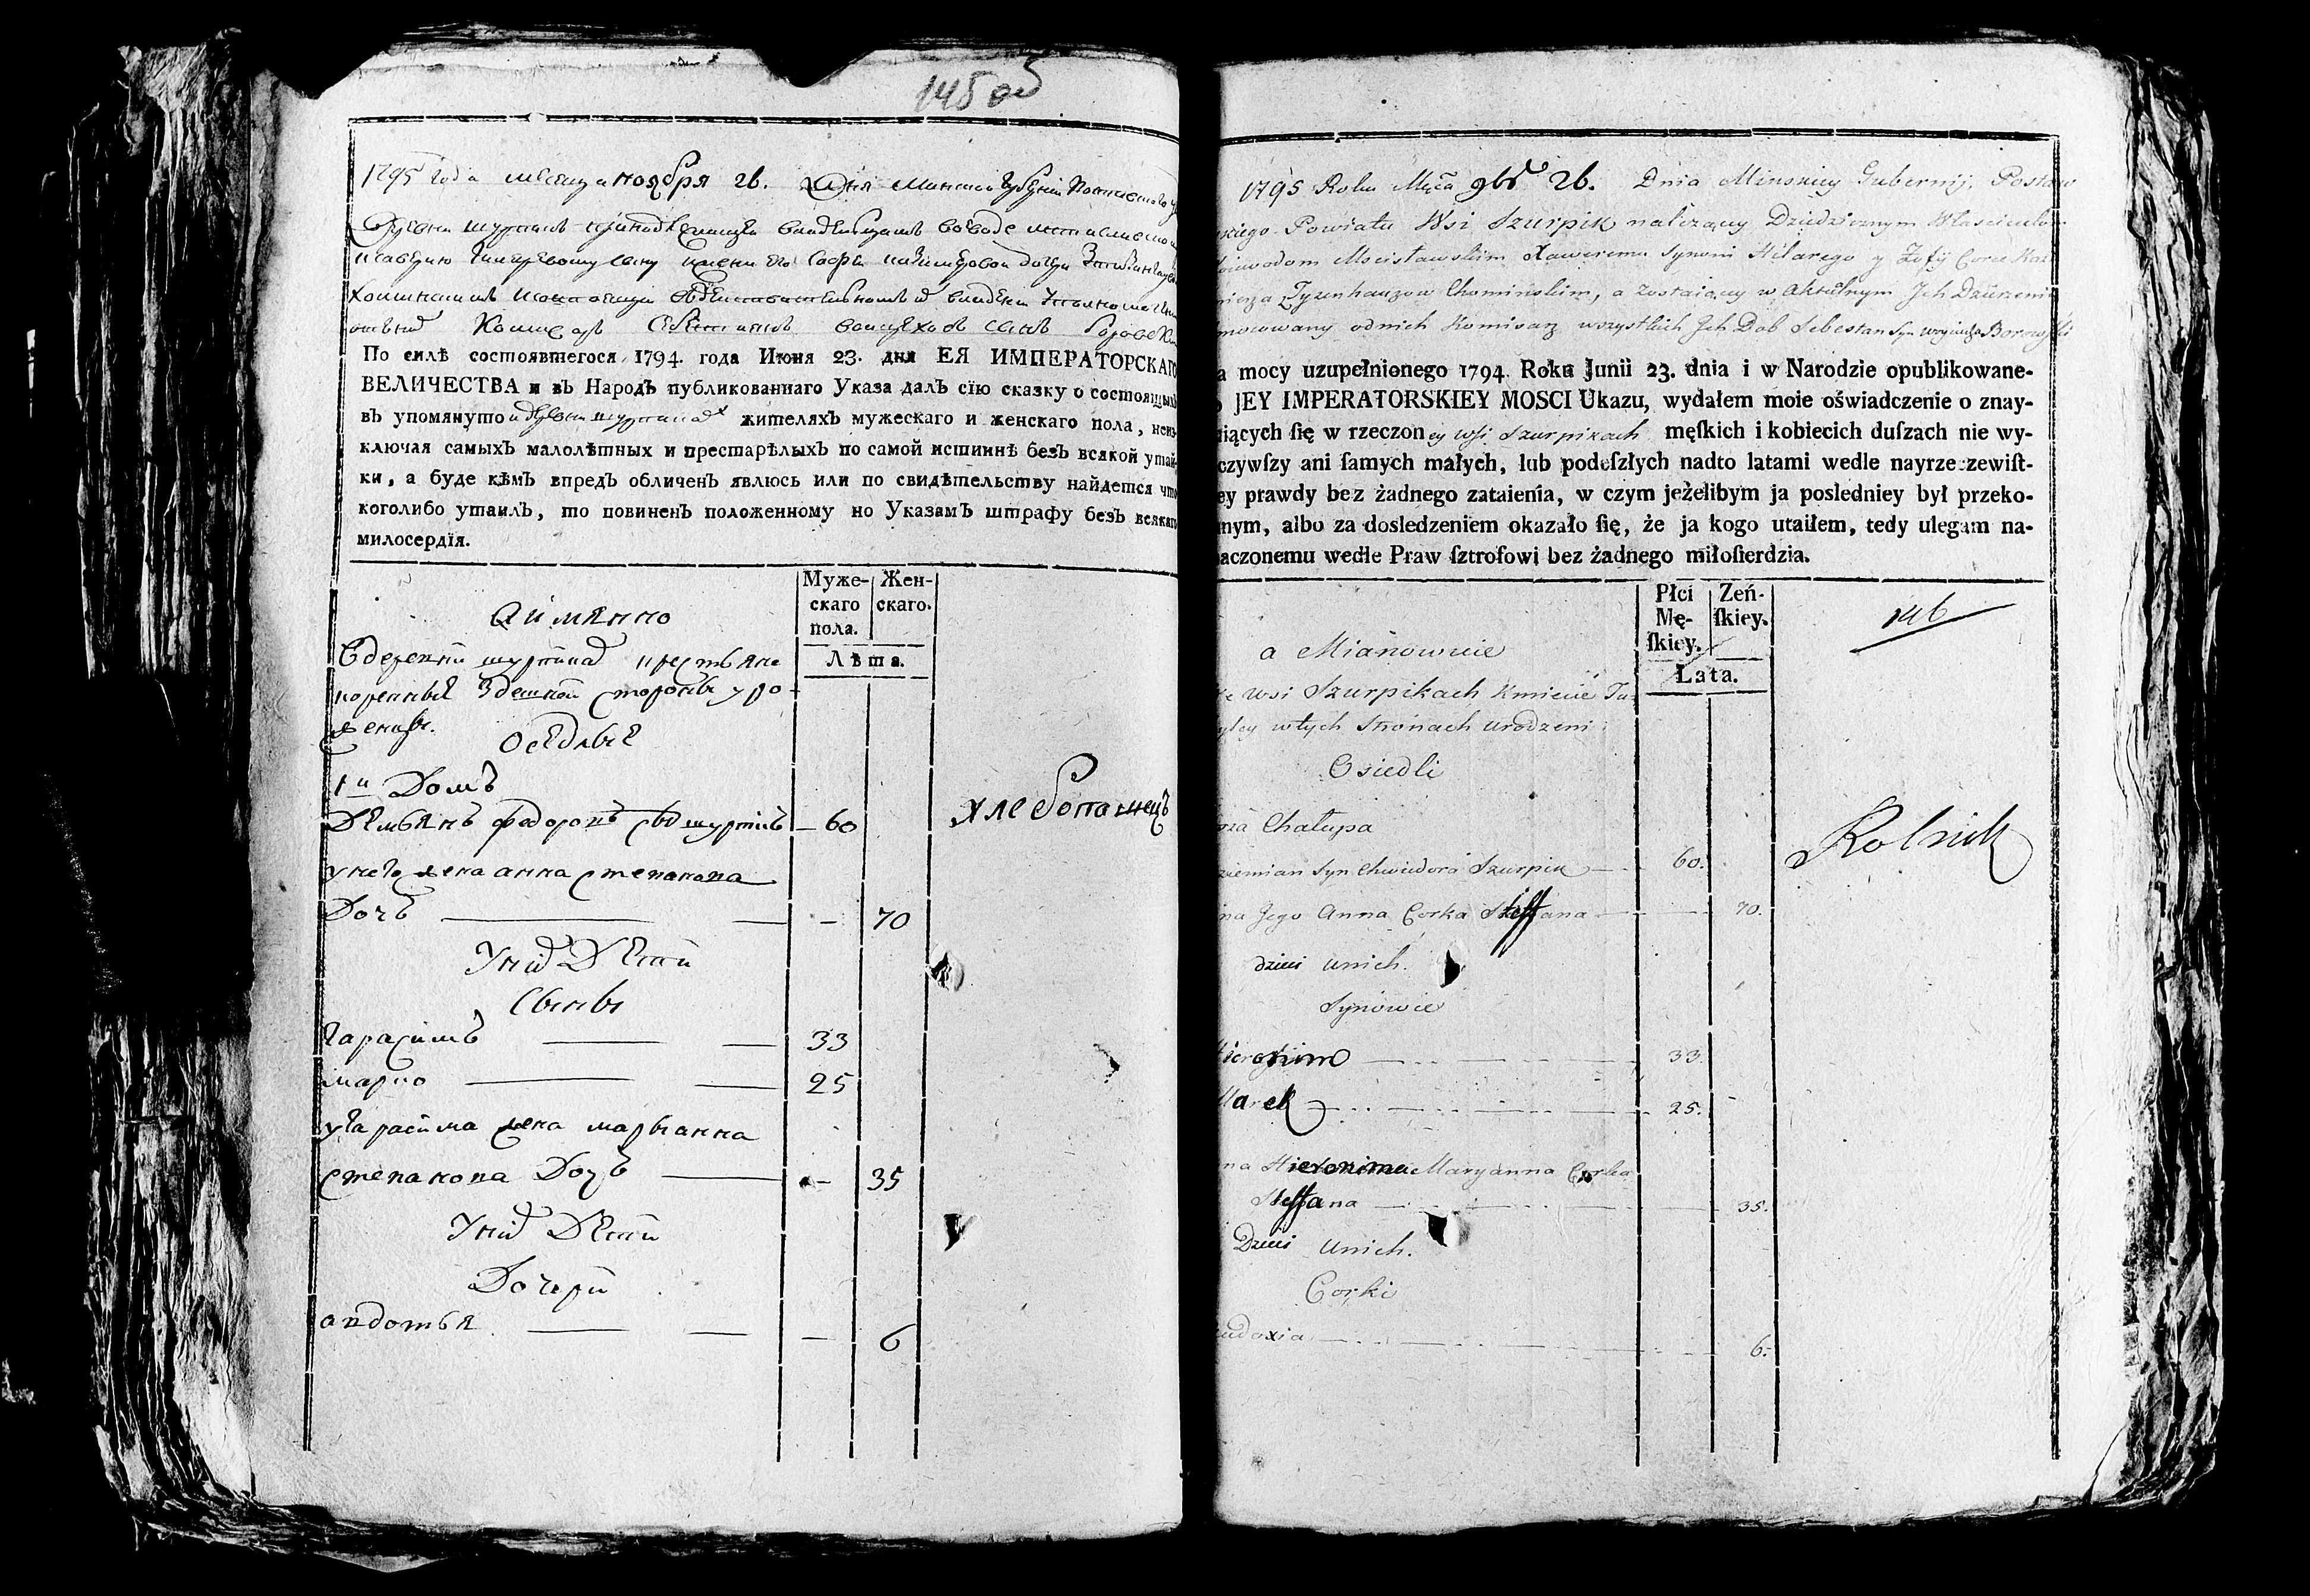 145 об
1795 года месяца ноября 26. Дня Минской Губернии
деревни шурпиковъ
По силѣ состоявшегося 1794. года Июня 23. дня ЕЯ ИМПЕРАТОРСКАГО
ВЕЛИЧЕСТВА и въ Народъ публикованнаго Указа далъ сїю сказку о состоящихъ
въ упомянутой деревни шурпикахъ жителяхъ мужескаго и женскаго пола, неис
ключая самыхъ малолѣтныхъ и престарѣлыхъ по самой истиннѣ безъ всякой утай
ки, а буде кѣмъ впредъ обличенъ явлюсь или по свидѣтельству найдется что
коголибо утаилъ, то повиненъ положенному по Указамъ штрафу безъ всякаго
милосердїя.
Муже- Жен-
скаго скаго.
пола.
Лѣта.
А имянно
Вдеревни шурпиках крестьяне
коренныя здешной стороны уро
женцы.
Оседлыя
1й Домъ
Демьянъ федоровъ снъ шурпикъ 60
хлебопашецъ
унего жена анна степанова
Дочь — 70
Уних Дети
Сыны
Гарасимъ 33
марко 25
уГарасима жена марьанна
степанова Дочь 35
Уних Дети
Дочери
авдотья — 6
1795 Roku Mca 9br 26. Dnia Minskiey Gubernij, Postaw
skiego Powiatu Wsi Szurpik należący Dziedzicznym Właścicielom
oiewodom Mscisławskim Xaweremu Synowi Hilarego y Zofij Corce Kaz
mierza Tyzenhauzow Chominskim, a zostaiący w aktualnym Jch
mocowany odnich Komisarz wszystkich Jch Dob Sebestan Syn Woyciecha Borowski
a mocy uzupełnionego 1794. Roku Junii 23. dnia i w Narodzie opublikowane-
o JEY IMPERATORSKIEY MOSCI Ukazu, wydałem moie oświadczenie o znay-
iących ſię w rzeczoney wsi Szurpikach męſkich i kobiecich duſzach nie wy-
czywſzy ani ſamych małych, lub podeſzłych nadto latami wedle nayrzeczewiſt-
ey prawdy bez żadnego zataienia, w czym jeżelibym ja posledniey był przeko-
nym, albo za dosledzeniem okazało ſię, że ja kogo utaiłem, tedy ulegam na-
aczonemu wedle Praw ſztrofowi bez żadnego miłoſierdzia.
Płci Zeń-
Mę- ſkiey.
ſkiey.
Lata.
146
a Mianowicie
we wsi Szurpikach Kmiecie Tu
ylcy wtych Stronach urodzeni
Osiedli
sza Chałupa
ziemian Syn Chwiedora Szurpik 60.
Rolnik
na Jego Anna Corka Steffana 70.
dzieci unich.
Synowie
Hieronim 33.
Marek 25.
na Hieronima Maryanna Corka
Steffana 35.
Dzieci unich.
Corki
udoxia 6.